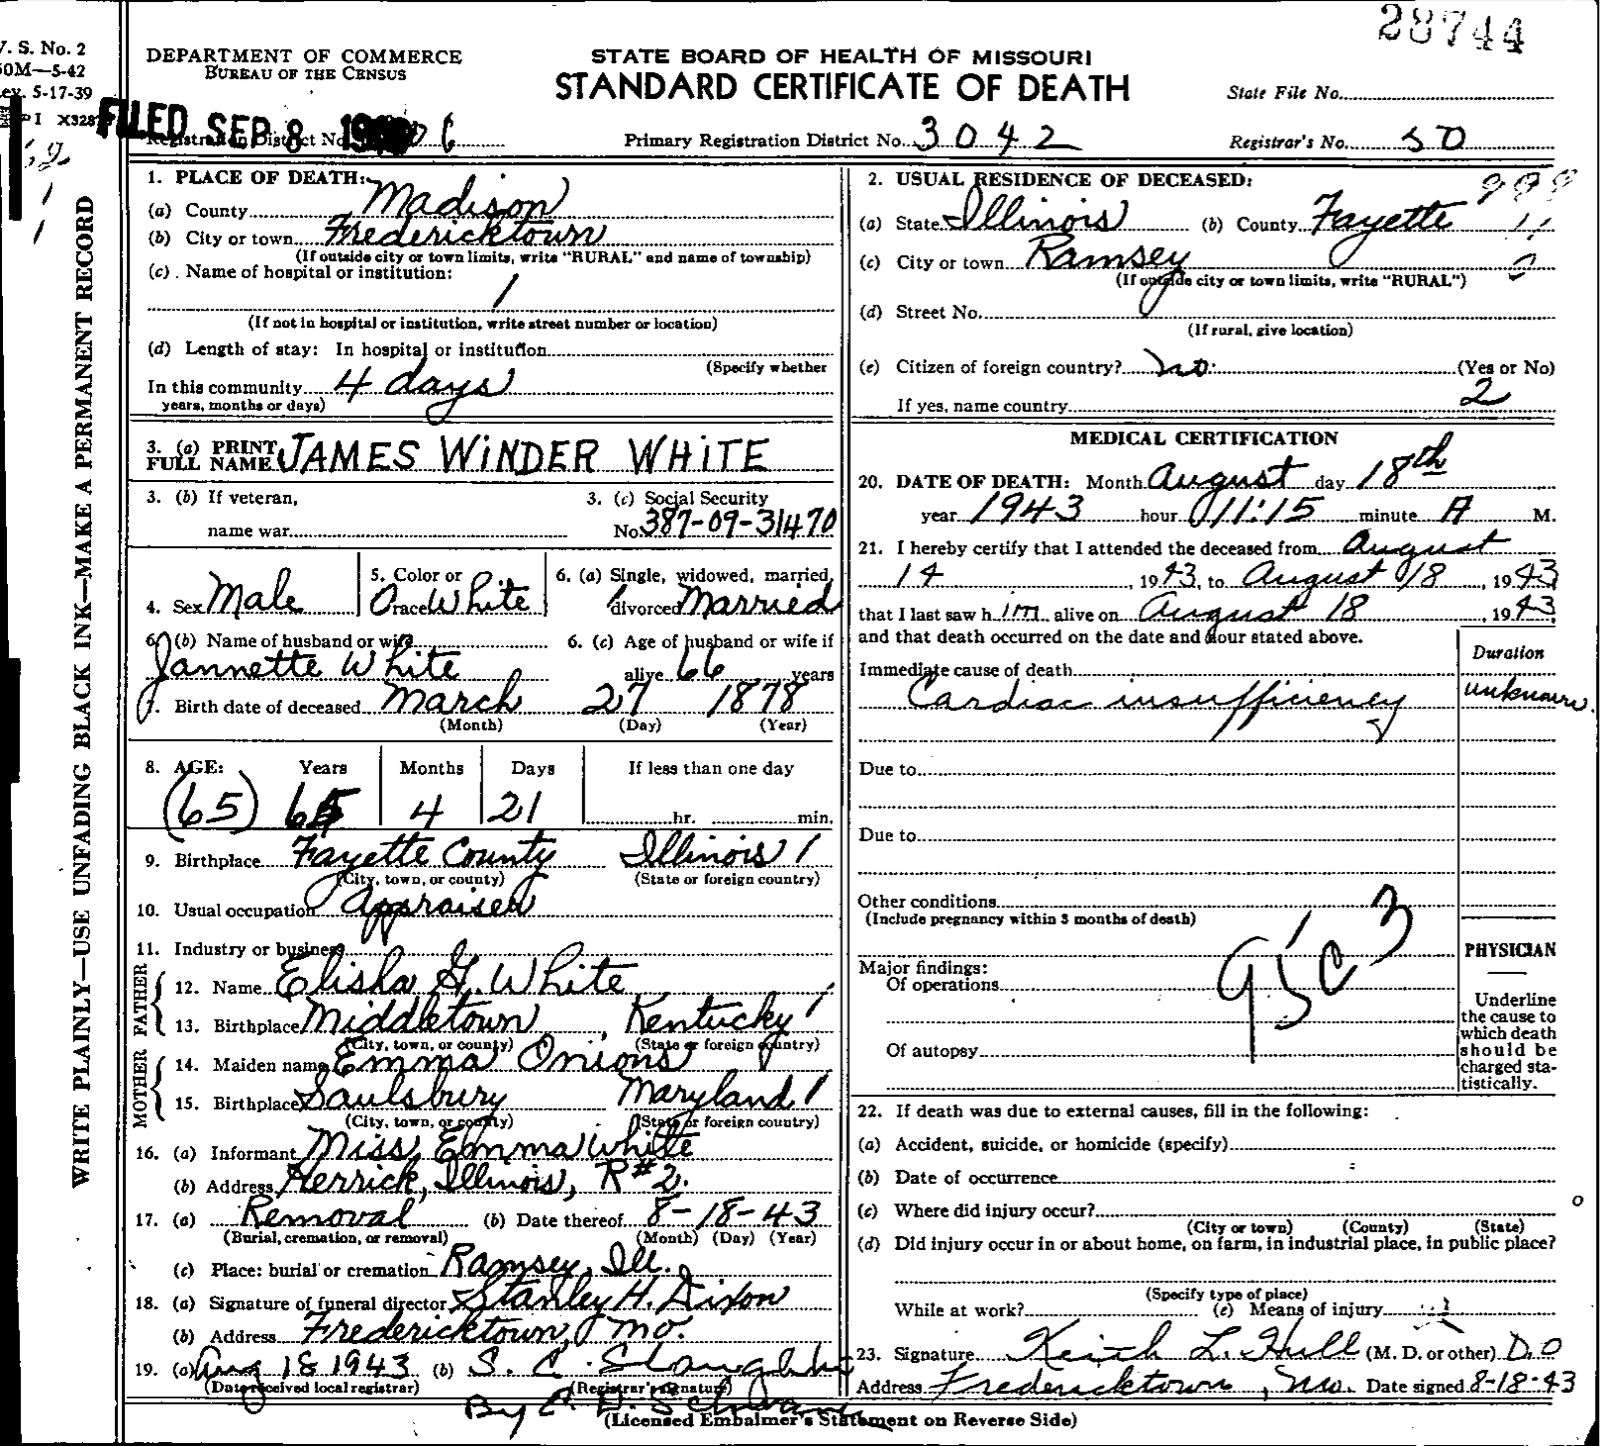 28744
V. S. No. 2
50M—5-42
ev. 5-17-39
PI X3287
DEPARTMENT OF COMMERCE
BUREAU OF THE CENSUS
STATE BOARD OF HEALTH OF MISSOURI
STANDARD CERTIFICATE OF DEATH
State File No.
FILED SEP 8
Registration District No. Primary Registration District No. 3042 Registrar's No. 50
WRITE PLAINLY—USE UNFADING BLACK INK—MAKE A PERMANENT RECORD
1. PLACE OF DEATH:
(a) County Madison
(b) City or town Fredericktown
(If outside city or town limits, write "RURAL" and name of township)
(c) Name of hospital or institution:
(If not in hospital or institution, write street number or location)
(d) Length of stay: In hospital or institution
(Specify whether
In this community 4 days
years, months or days)
3. (a) PRINT
FULL NAME JAMES WINDER WHITE
3. (b) If veteran,
name war
3. (c) Social Security
No. 387-09-31470
4. Sex Male
5. Color or
race White
6. (a) Single, widowed, married,
divorced Married
6. (b) Name of husband or wife
Jannette White
6. (c) Age of husband or wife if
alive 66 years
7. Birth date of deceased March 27 1878
(Month) (Day) (Year)
8. AGE: Years Months Days If less than one day
(65) 65 4 21 hr. min.
9. Birthplace Fayette County Illinois
(City, town, or county) (State or foreign country)
10. Usual occupation Appraiser
11. Industry or business
FATHER
12. Name Elisha G. White
13. Birthplace Middletown, Kentucky
(City, town, or county) (State or foreign country)
MOTHER
14. Maiden name Emma Onions
15. Birthplace Saulsbury Maryland
(City, town, or county) (State or foreign country)
16. (a) Informant Miss Emma White
(b) Address Herrick, Illinois, R#2.
17. (a) Removal (b) Date thereof 8-18-43
(Burial, cremation, or removal) (Month) (Day) (Year)
(c) Place: burial or cremation Ramsey, Ill.
18. (a) Signature of funeral director Stanley H. Dixon
(b) Address Fredericktown, Mo.
19. (a) Aug 18 1943 (b) S. C. Slaughter
(Date received local registrar) (Registrar's signature)
By
(Licensed Embalmer's Statement on Reverse Side)
2. USUAL RESIDENCE OF DECEASED:
(a) State Illinois (b) County Fayette
(c) City or town Ramsey
(If outside city or town limits, write "RURAL")
(d) Street No.
(If rural, give location)
(e) Citizen of foreign country? no. (Yes or No)
2
If yes, name country
MEDICAL CERTIFICATION
20. DATE OF DEATH: Month August day 18th
year 1943 hour 11:15 minute A M.
21. I hereby certify that I attended the deceased from August
14, 1943, to August 18, 1943
that I last saw him alive on August 18, 1943,
and that death occurred on the date and hour stated above.
Duration
Immediate cause of death
Cardiac insufficiency unknown.
Due to
Due to
Other conditions
(Include pregnancy within 3 months of death)
Major findings:
Of operations
Of autopsy
PHYSICIAN
Underline
the cause to
which death
should be
charged sta-
tistically.
22. If death was due to external causes, fill in the following:
(a) Accident, suicide, or homicide (specify)
(b) Date of occurrence
(c) Where did injury occur?
(City or town) (County) (State)
(d) Did injury occur in or about home, on farm, in industrial place, in public place?
(Specify type of place)
While at work? (e) Means of injury
23. Signature Keith L. Hull (M. D. or other) D.O
Address Fredericktown, Mo. Date signed 8-18-43